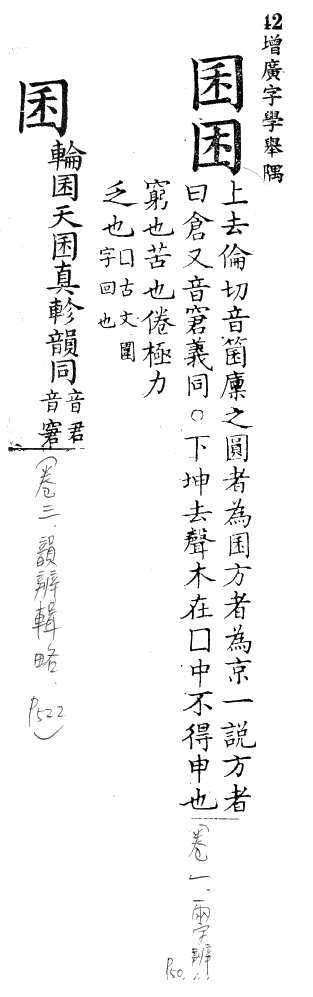 42
增廣字學舉隅
囷困
上去倫切音箘廩之圓者為囷方者為京一說方者
曰倉又音窘義同○下坤去聲木在囗中不得申也
窮也苦也倦極力
乏也囗古文圍
字回也
(卷一、兩字辨
P50.
囷
輪囷天囷真軫韻同音君
音窘
(卷三、韻辨輯略.
P522)